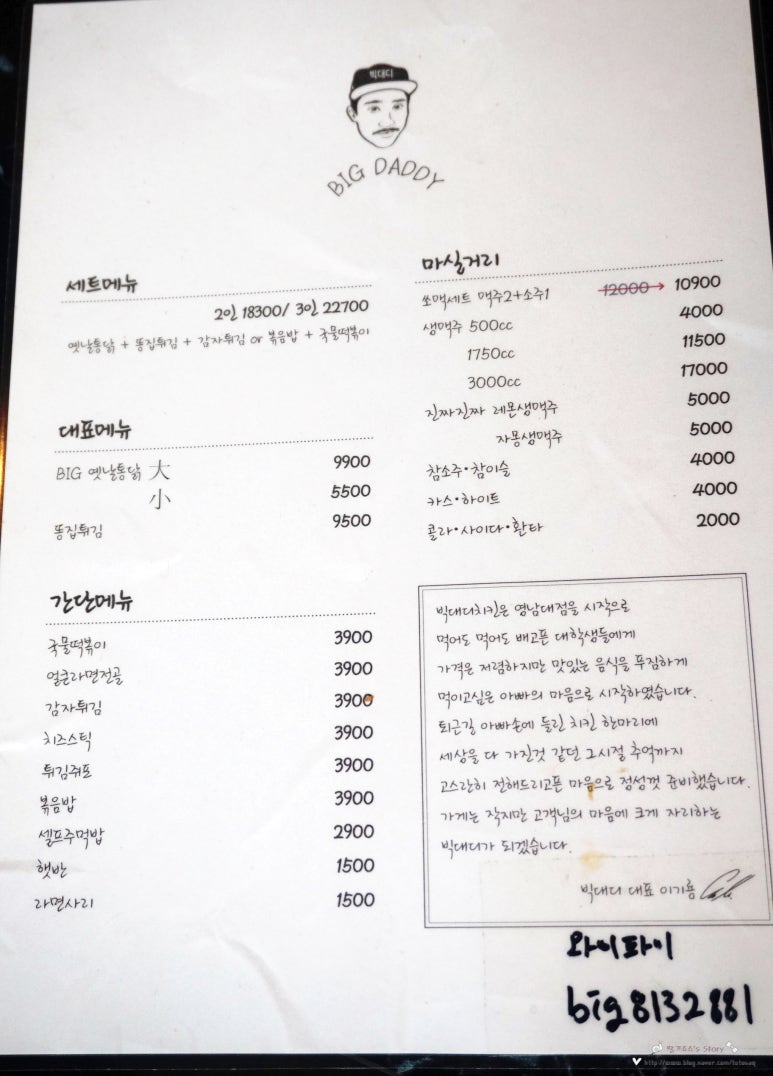 빅대디
BIG DADDY
세트메뉴
2인 18300/ 3인 22700
옛날통닭 + 똥집튀김 + 감자튀김 or 볶음밥 + 국물떡볶이
대표메뉴
BIG 옛날통닭 大 9900
小 5500
똥집튀김 9500
간단메뉴
국물떡볶이 3900
얼큰라면전골 3900
감자튀김 3900
치즈스틱 3900
튀김쥐포 3900
볶음밥 3900
셀프주먹밥 2900
햇반 1500
라면사리 1500
마실거리
쏘맥세트 맥주2+소주1 12000→ 10900
생맥주 500cc 4000
1750cc 11500
3000cc 17000
진짜진짜 레몬생맥주 5000
자몽생맥주 5000
참소주·참이슬 4000
카스·하이트 4000
콜라·사이다·환타 2000
빅대디치킨은 영남대점을 시작으로
먹어도 먹어도 배고픈 대학생들에게
가격은 저렴하지만 맛있는 음식을 푸짐하게
먹이고싶은 아빠의 마음으로 시작하였습니다.
퇴근길 아빠손에 들린 치킨 한마리에
세상을 다 가진것 같던 그시절 추억까지
고스란히 전해드리고픈 마음으로 정성껏 준비했습니다.
가게는 작지만 고객님의 마음에 크게 자리하는
빅대디가 되겠습니다.
빅대디 대표 이기룡
와이파이
big8132881